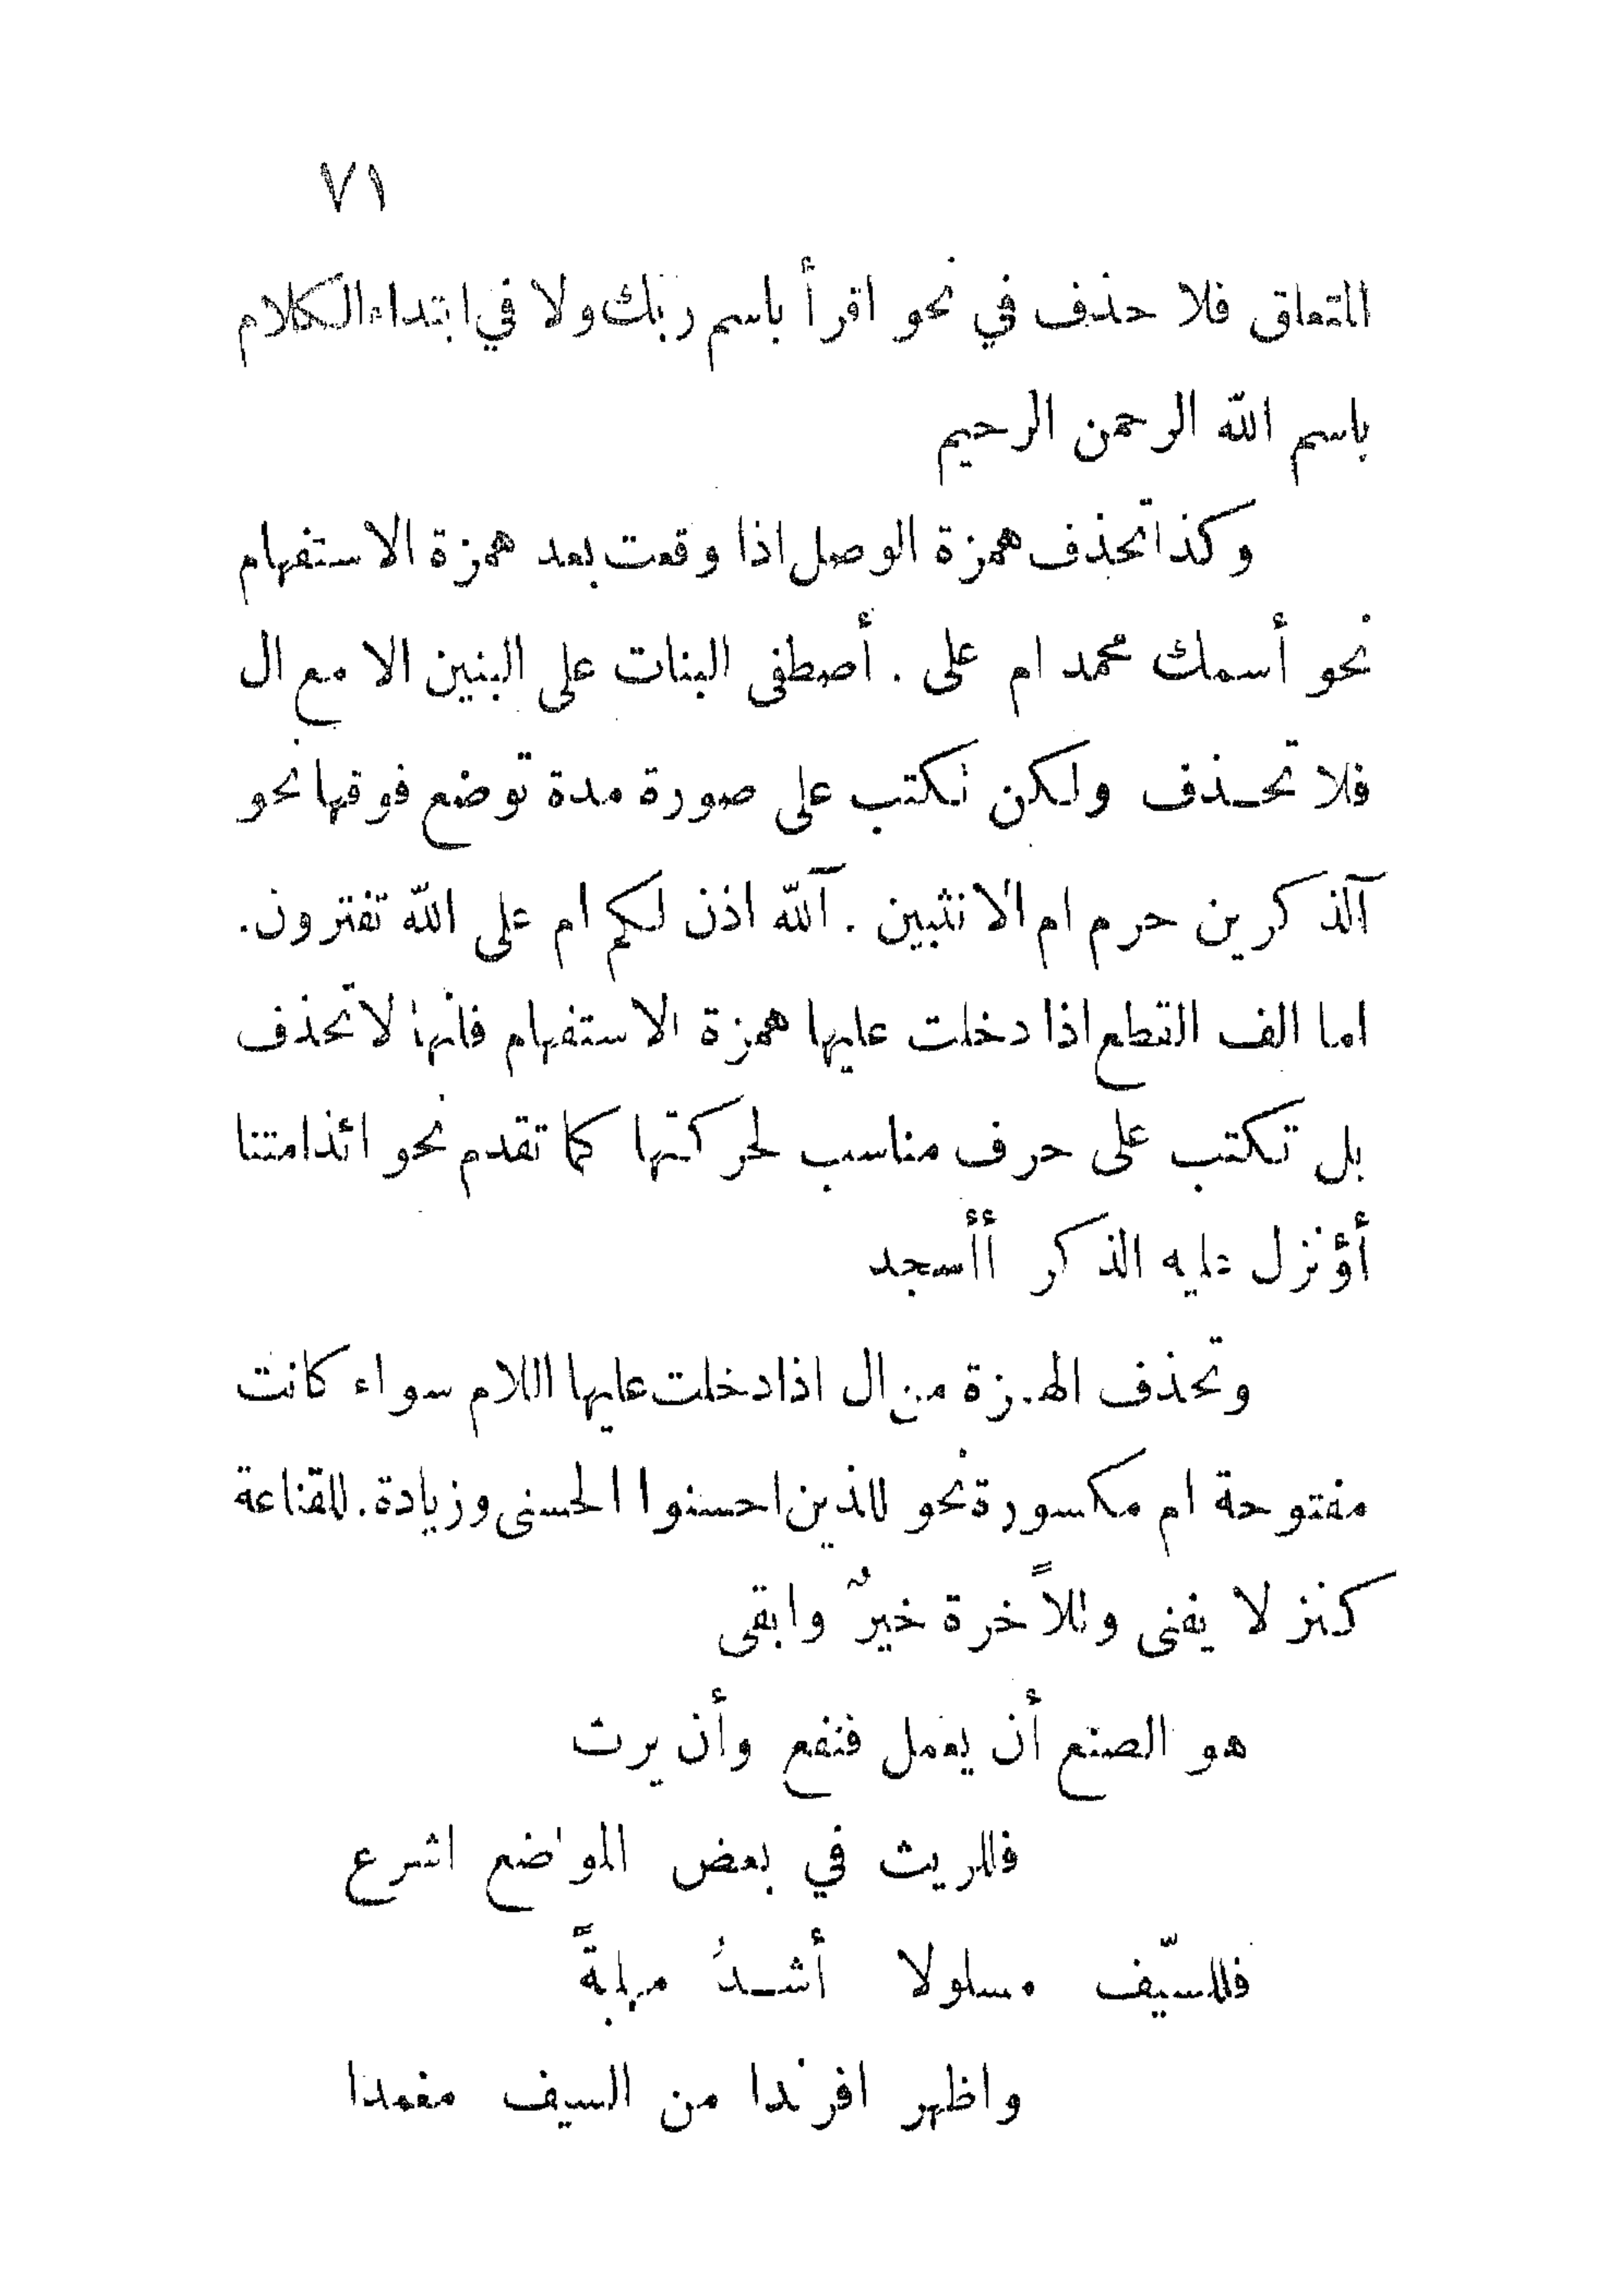 ٧١
المتعلق فلا حذف في نحو اقرأ باسم ربك ولا في ابتداء الكلام
باسم الله الرحمن الرحيم
وكذا تحذف همزة الوصل اذا وقعت بعد همزة الاستفهام
نحو أسمك محمد ام على . أصطفى البنات على البنين الا مع ال
فلا تحـذف ولكن تكتب على صورة مدة توضع فوقها نحو
آلذكرين حرم ام الانثيين . آللّه اذن لكم ام على اللّه تفترون .
اما الف القطع اذا دخلت عليها همزة الاستفهام فانها لا تحذف
بل تكتب على حرف مناسب لحركتها كما تقدم نحو ائذا متنا
أؤنزل عليه الذكر أأسجد
وتحذف الهمزة من ال اذا دخلت عليها اللام سواء كانت
مفتوحة ام مكسورة نحو للذين احسنوا الحسنى وزيادة . للقناعة
كنز لا يفنى وللآخرة خيرٌ وابقى
هو الصنع أن يعمل فنفع وأن يرث
فللريث في بعض المواضع اشرع
فللسّيف مسلولا أشـدُ مهابةً
واظهر افرندا من السيف مغمدا